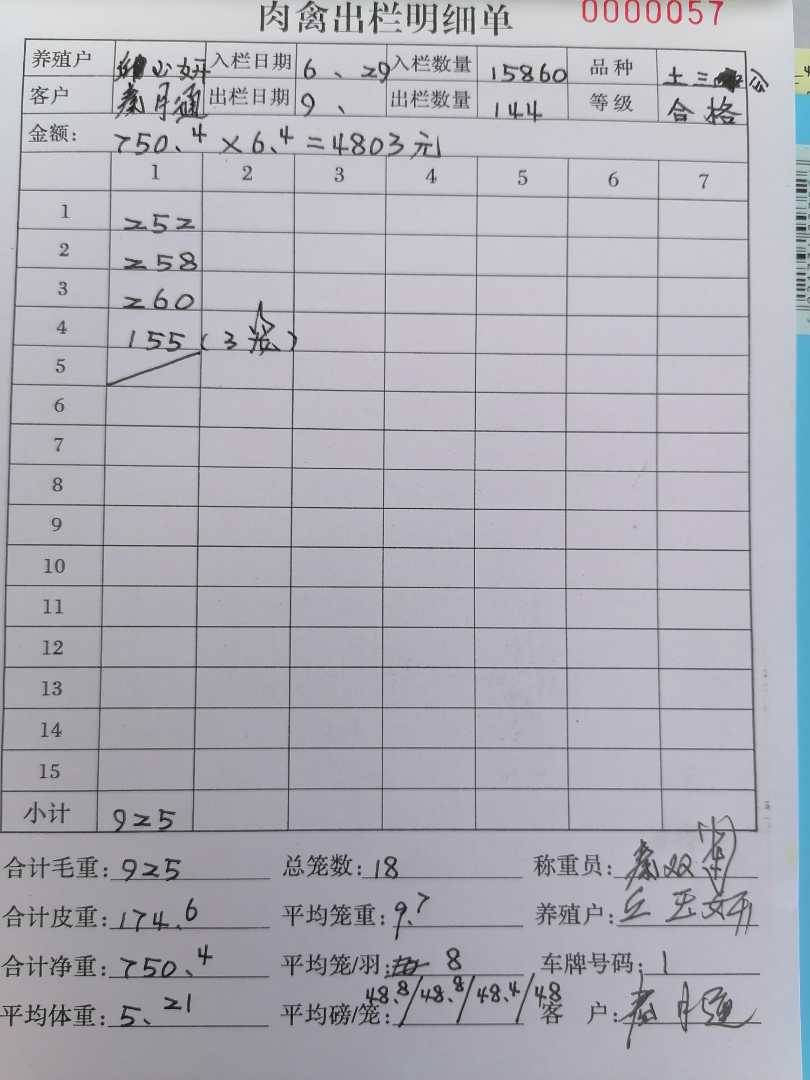 肉禽出栏明细单 0000057
养殖户 小妍 入栏日期 6、29 入栏数量 15860 品种 土三
客户 秦月通 出栏日期 9、 出栏数量 144 等级 合格
金额: 750.4×6.4=4803元
1 2 3 4 5 6 7
1 252
2 258
3 260
4 155(3笼)
5
6
7
8
9
10
11
12
13
14
15
小计 925
合计毛重: 925 总笼数: 18 称重员: 秦双
合计皮重: 174.6 平均笼重: 9.7 养殖户:
合计净重: 750.4 平均笼/羽: 8 车牌号码: 1
平均体重: 5.21 平均磅/笼: 48.8/48.8/48.4/48 客户: 秦月通